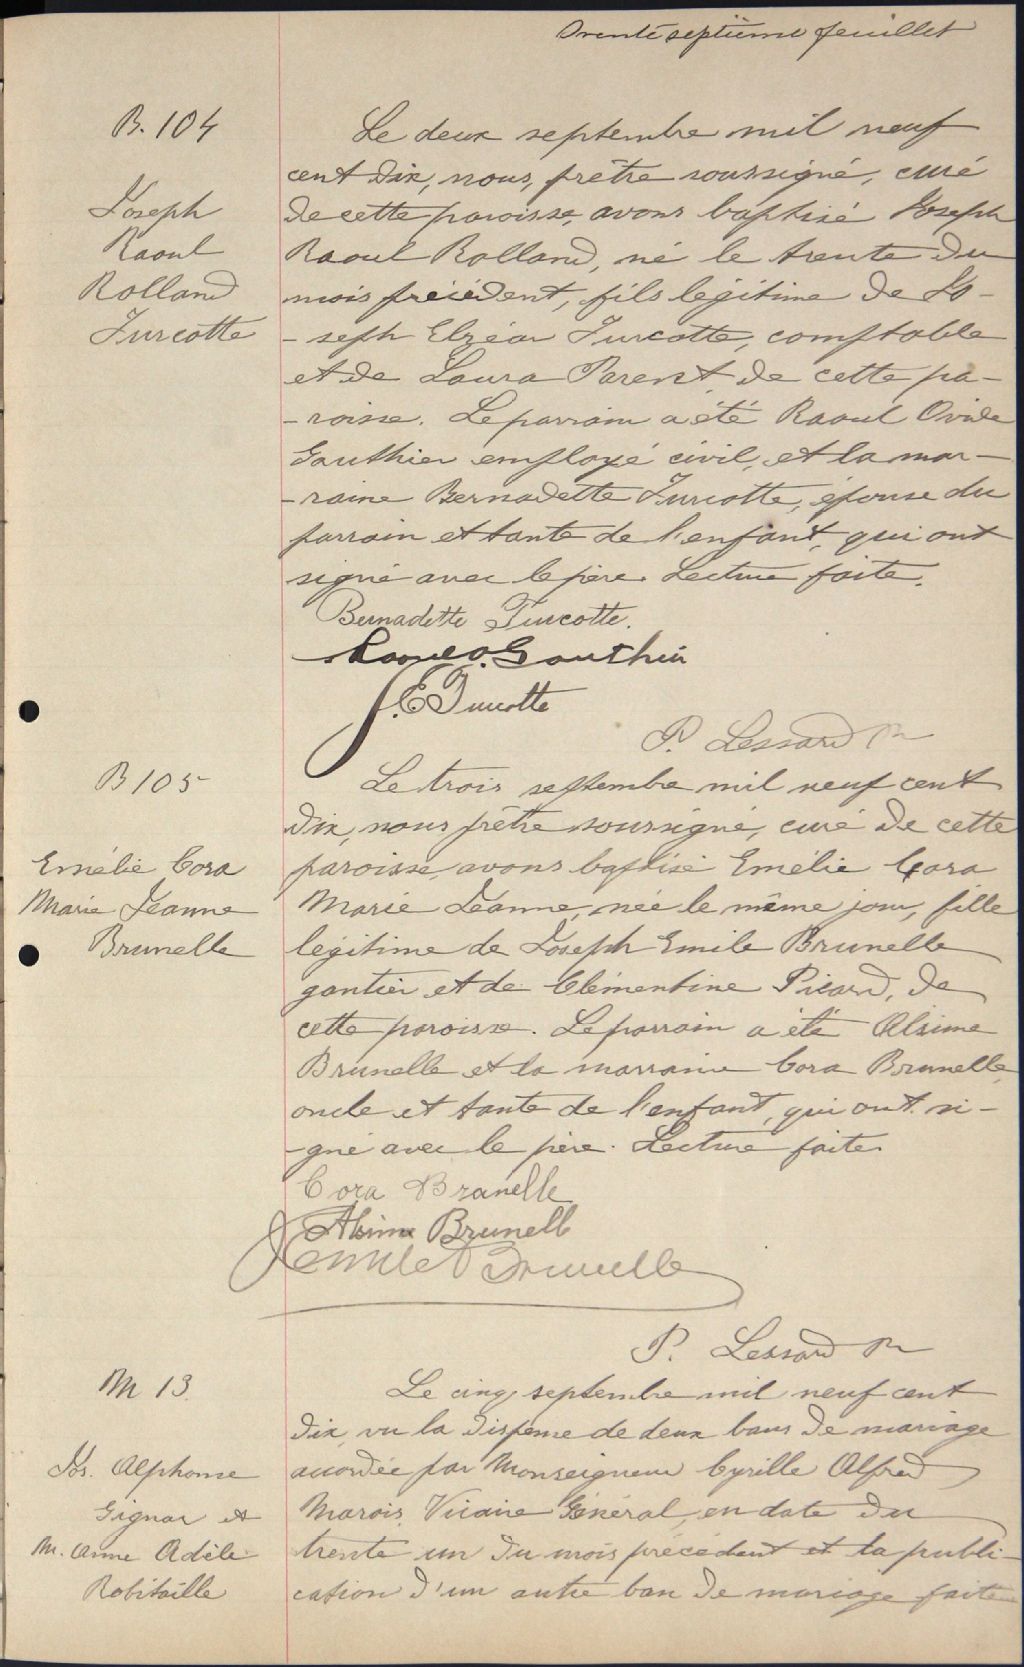 Trente septième feuillet
B. 104
Joseph
Raoul
Rolland
Turcotte
Le deux septembre mil neuf
cent dix, nous, prêtre soussigné, curé
de cette paroisse, avons baptisé Joseph
Raoul Rolland, né le trente du
mois précédent, fils légitime de Jo-
-seph Elzéar Turcotte, comptable
et de Laura Parent de cette pa-
-roisse. Le parrain a été Raoul Ovide
Gauthier employé civil, et la mar-
-raine Bernadette Turcotte, épouse du
parrain et tante de l'enfant, qui ont
signé avec le père. Lecture faite.
Bernadette Turcotte.
Raoul O. Gauthier
J. E Turcotte
P. Lessard Ptre
B 105
Emélie Cora
Marie Jeanne
Brunelle
Le trois septembre mil neuf cent
dix, nous prêtre soussigné, curé de cette
paroisse, avons baptisé Emélie Cora
Marie Jeanne, née le même jour, fille
légitime de Joseph Emile Brunelle
gantier et de Clémentine Picard, de
cette paroisse. Le parrain a été Alsime
Brunelle et la marraine Cora Brunelle,
oncle et tante de l'enfant, qui ont si-
-gné avec le père. Lecture faite.
Cora Brunelle
Alsime Brunelle
J Emile Brunelle
P. Lessard Ptre
M 13.
Jos. Alphonse
Gignac et
M. Anne Adèle
Robitaille
Le cinq septembre mil neuf cent
dix, vu la dispense de deux bans de mariage
accordée par Monseigneur Cyrille Alfred
Marois, Vicaire Général, en date du
trente un du mois précédent et la publi-
cation d'un autre ban de mariage faite